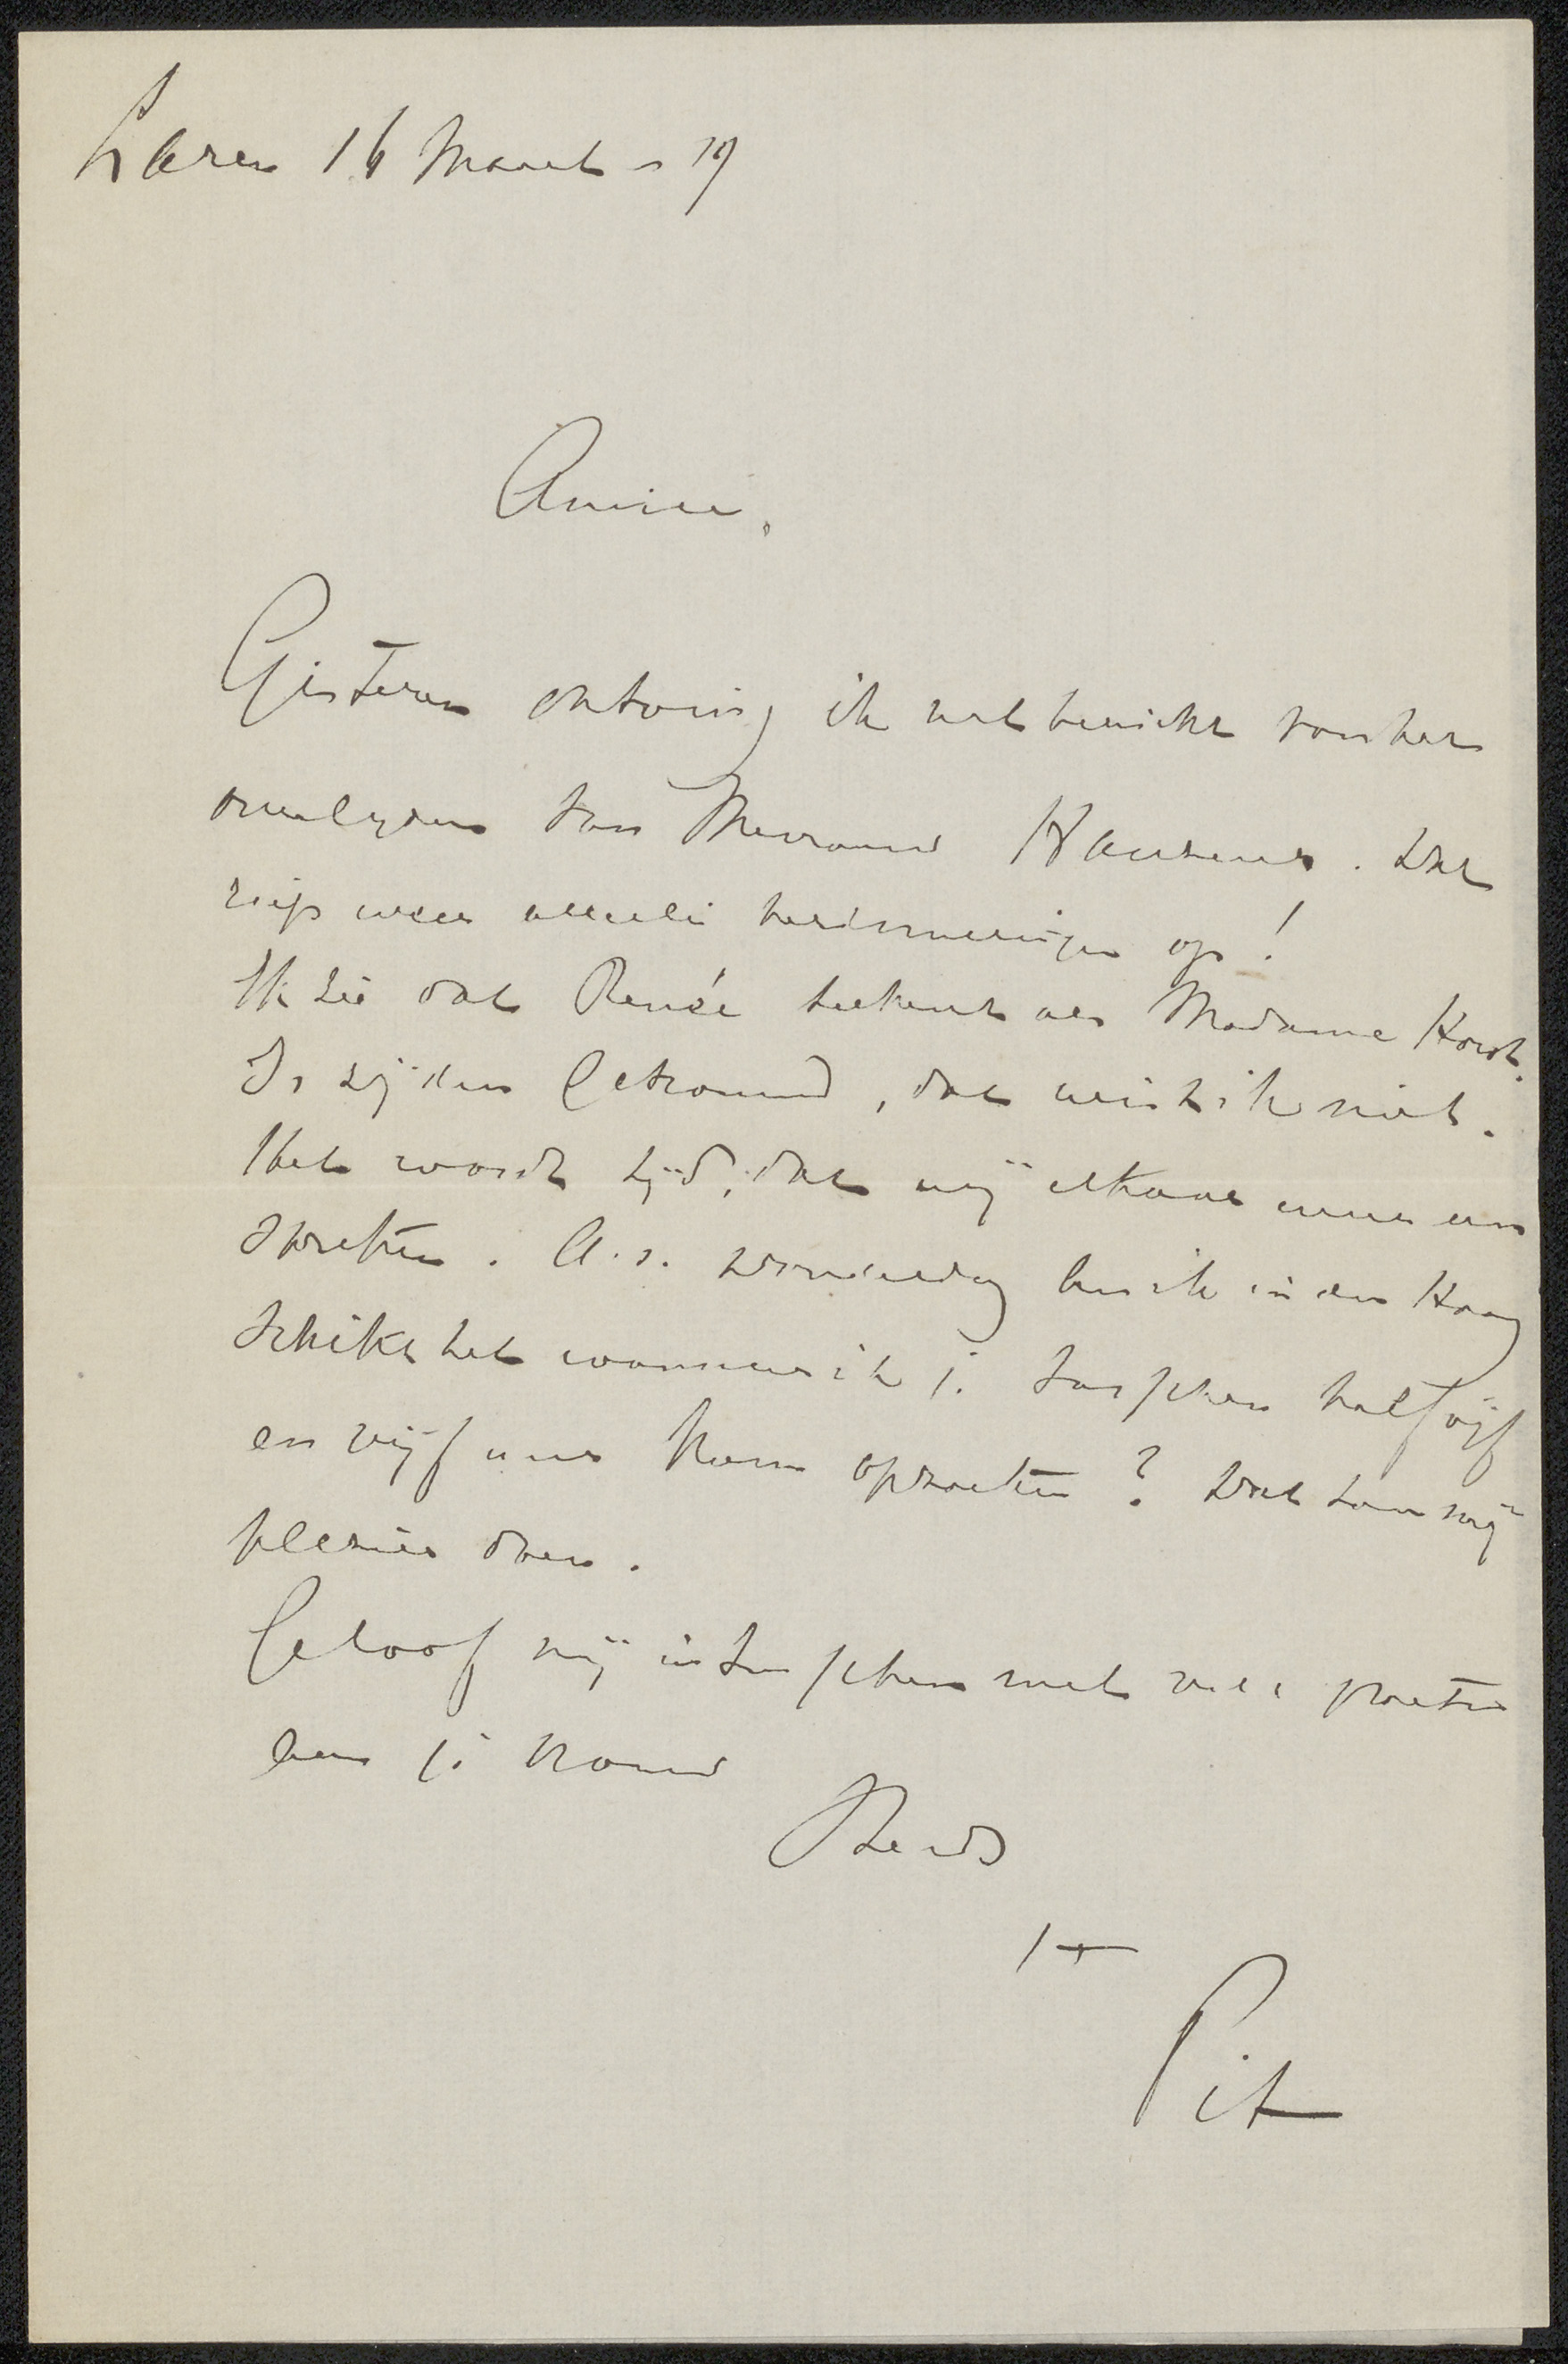 Laren 16 Maart - 19
Amice,
Gisteren ontving ik het bericht van het
overlijden van Mevrouw Haverman. Dat
riep weer allerlei herinneringen op!
Ik zie dat Renée teekent als Madame Horst.
Is zij dan getrouwd, dat wist ik niet.
Het wordt tijd, dat wij elkaar weer eens
spreken. A.s. Donderdag ben ik in den Haag
Schikt het wanneer ik je tusschen half vijf
en vijf uur kom opzoeken? Dat zou mij
plezier doen.
Geloof mij intusschen met vele groeten
aan je vrouw
steeds
tt
Pit